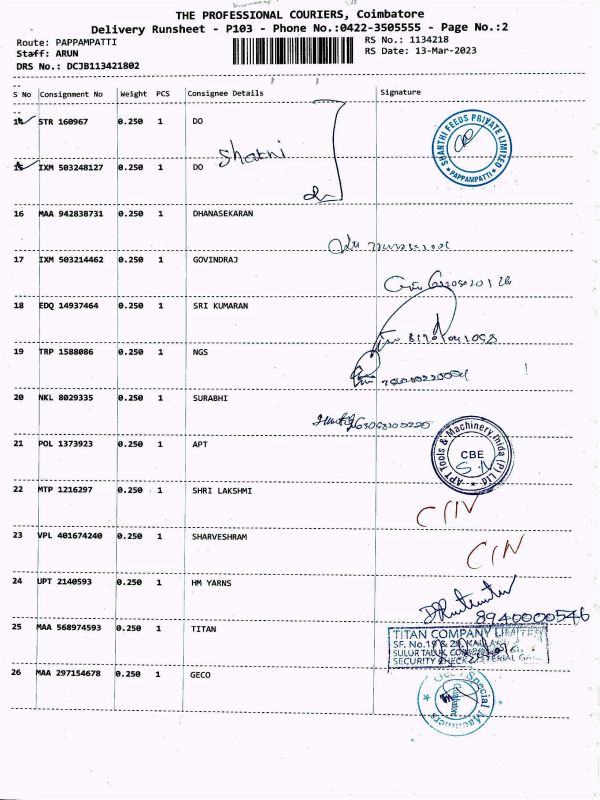 THE PROFESSIONAL COURIERS, Coimbatore
Delivery Runsheet - P103 - Phone No.:0422-3505555 - Page No.:2
Route: PAPPAMPATTI
RS No.: 1134218
Staff: ARUN
RS Date: 13-Mar-2023
DRS No.: DCJB113421802
S No Consignment No Weight PCS Consignee Details Signature
14 STR 160967 0.250 1 DO
SHANTHI FEEDS PRIVATE LIMITED
PAPPAMPATTI
15 IXM 503248127 0.250 1 DO
16 MAA 942838731 0.250 1 DHANASEKARAN
17 IXM 503214462 0.250 1 GOVINDRAJ
18 EDQ 14937464 0.250 1 SRI KUMARAN
19 TRP 1588086 0.250 1 NGS
20 NKL 8029335 0.250 1 SURABHI
21 POL 1373923 0.250 1 APT
APT Tools & Machinery Inida (P) Ltd
CBE
22 MTP 1216297 0.250 1 SHRI LAKSHMI
23 VPL 401674240 0.250 1 SHARVESHRAM
24 UPT 2140593 0.250 1 HM YARNS
8940000546
25 MAA 568974593 0.250 1 TITAN
TITAN COMPANY LIMITED
SF. No.19 & 20,
SULUR TALUK,
SECURITY CHECK MATERIAL GATE
26 MAA 297154678 0.250 1 GECO
Special
Coimbatore